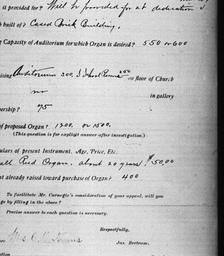 is provided for? Will be provided for at dedication
built of? Cased Brick Building.
Capacity of Auditorium for which Organ is desired? 550 or 600
Auditorium 300, S. School Rooms 250 on floor of Church
no in gallery
ership? 75
of proposed Organ? 1200. or 1500.
(This question is for explicit answer after investigation.)
ulars of present Instrument. Age, Price, Etc.
all Reed Organ. about 20 years. $50.00
nt already raised toward purchase of Organ? 400
To facilitate Mr. Carnegie's consideration of your appeal, will you
ge by filling in the above?
Precise answer to each question is necessary.
Respectfully,
Jas. Bertram.